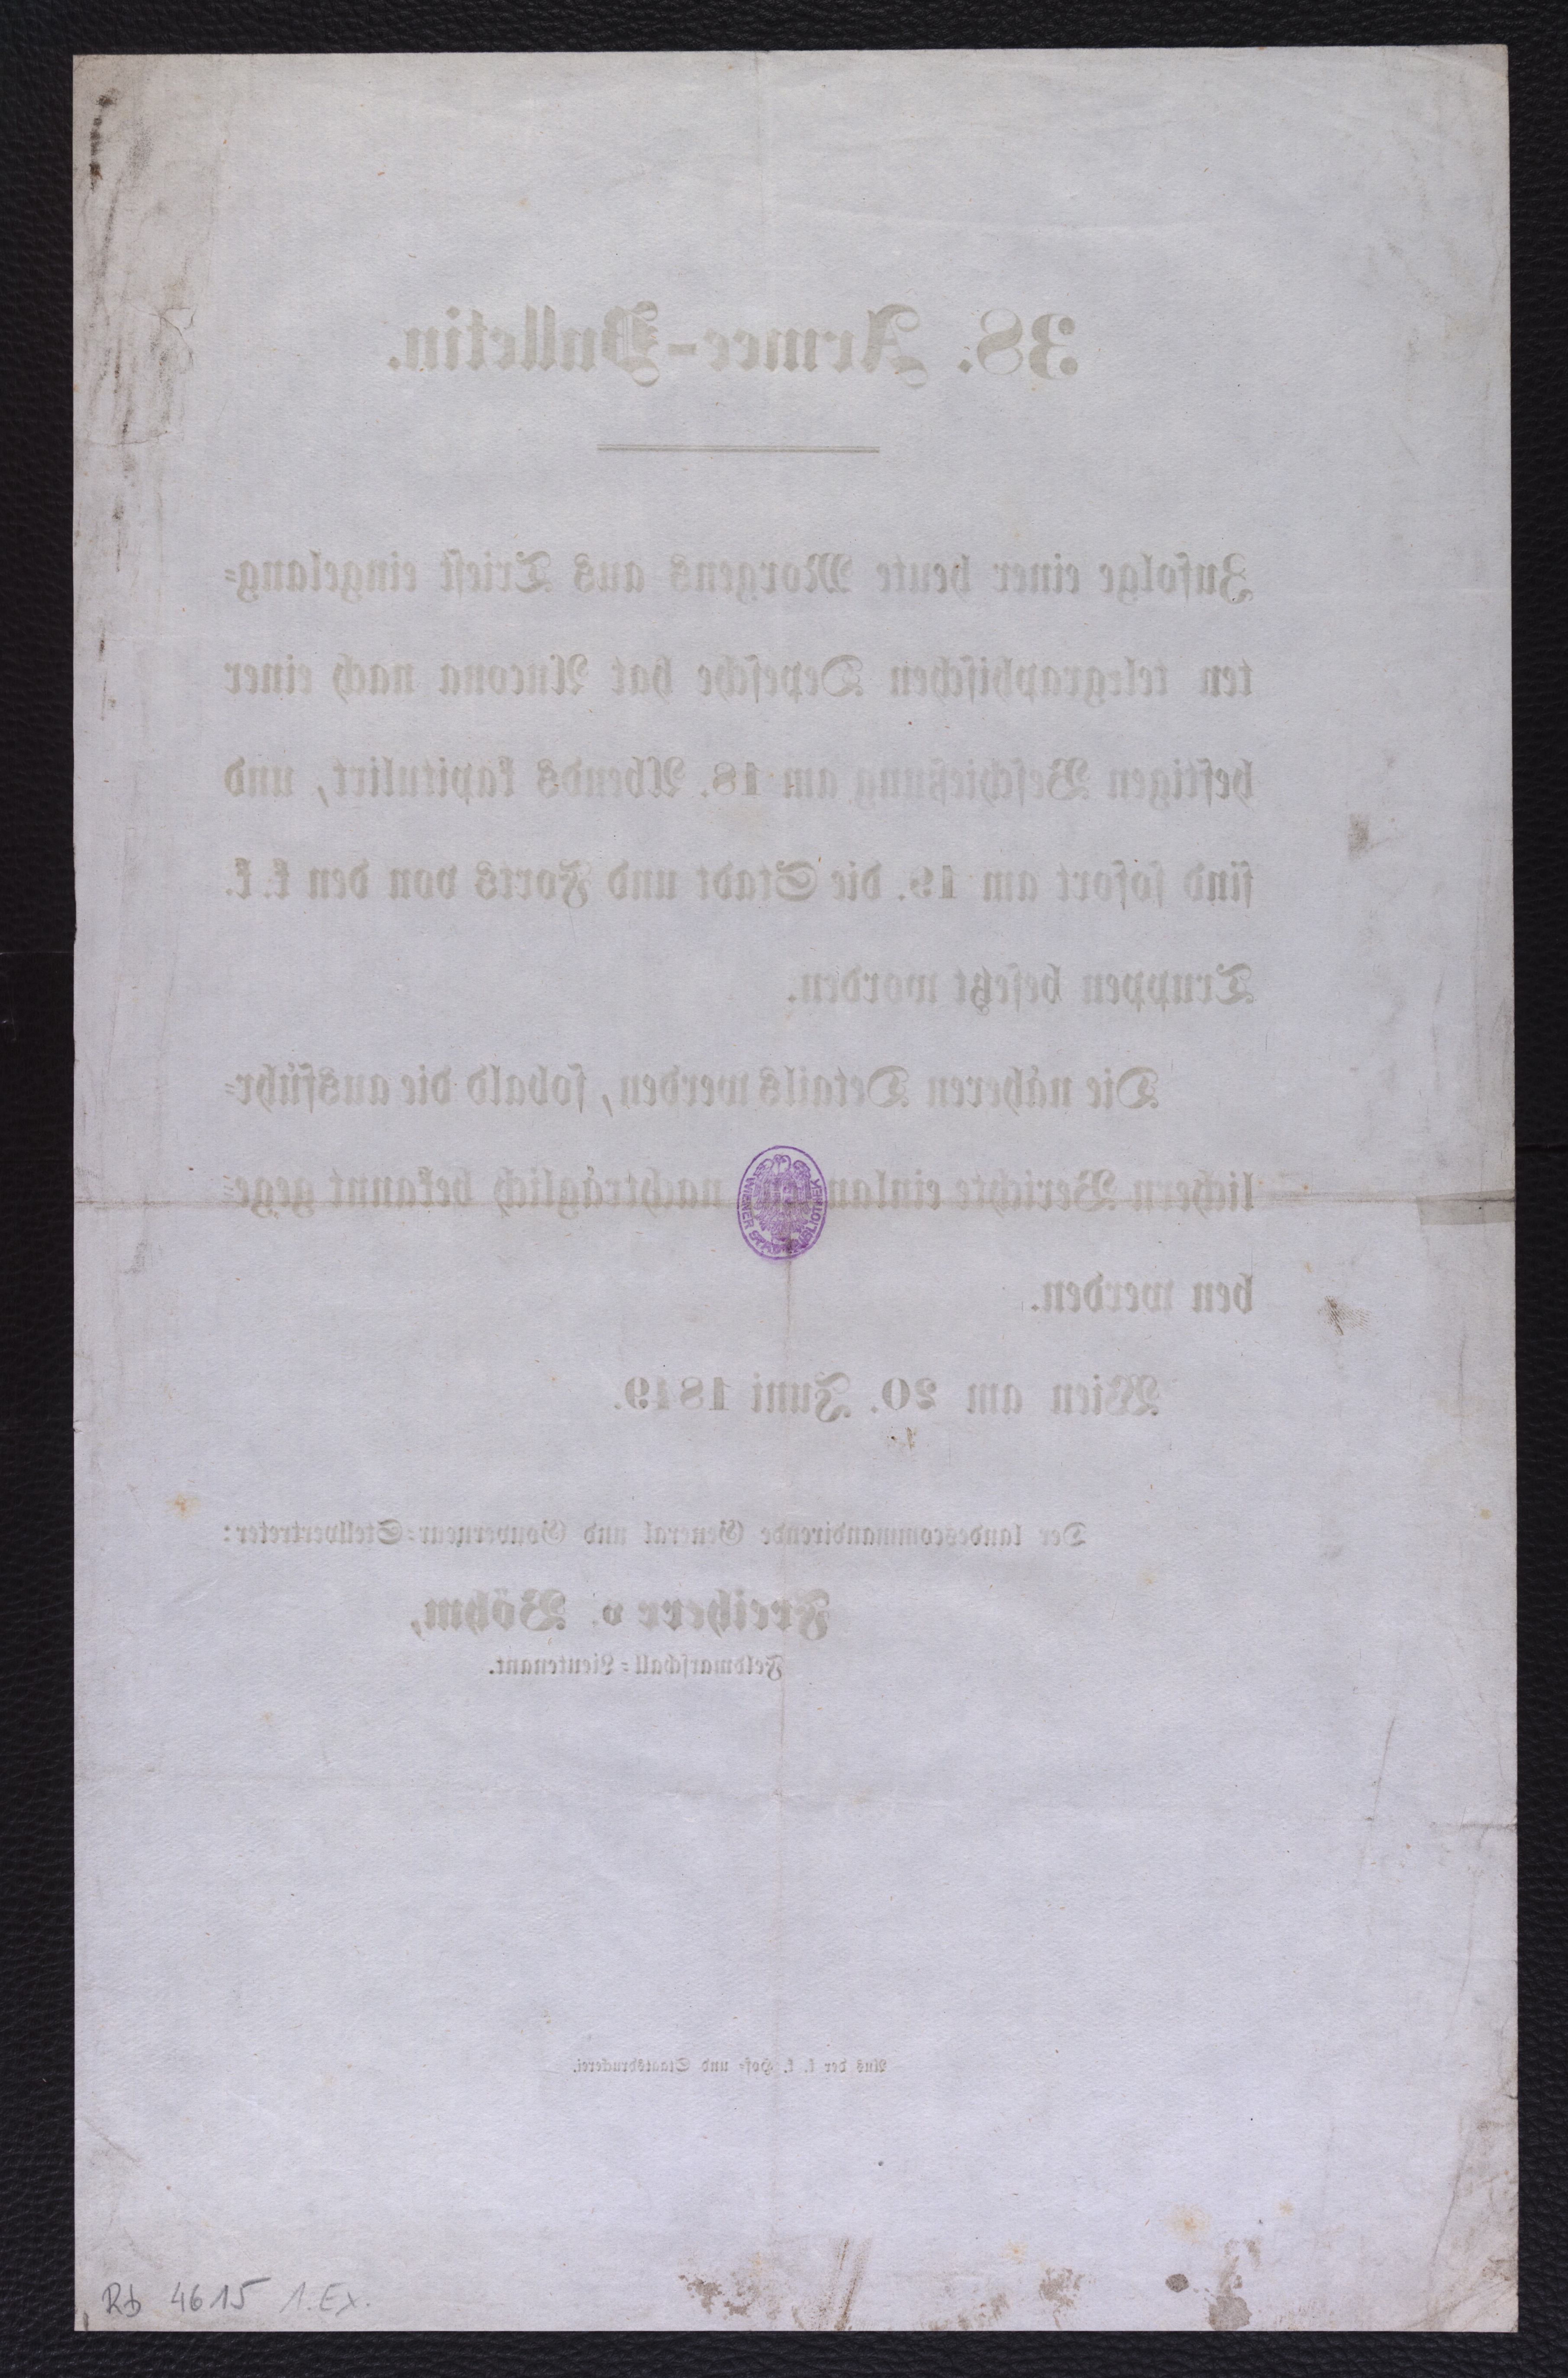 38. Armee-Bulletin.
Zufolge einer heute Morgens aus Triest eingelang=
ten telegraphischen Depesche hat Ancona nach einer
heftigen Beschießung am 18. Abends kapitulirt, und
sind sofort am 19. die Stadt und Forts von den k. k.
Truppen besetzt worden.
Die näheren Details werden, sobald die ausführ=
lichern Berichte einlangen nachträglich bekannt gege=
ben werden.
Wien am 20. Juni 1849.
Der landescommandirende General und Gouverneur=Stellvertreter:
Freiherr v. Böhm,
Feldmarschall=Lieutenant.
Aus der k. k. Hof= und Staatsdruckerei.
WIENER STADTBIBLIOTHEK
Rb 4615 1. Ex.